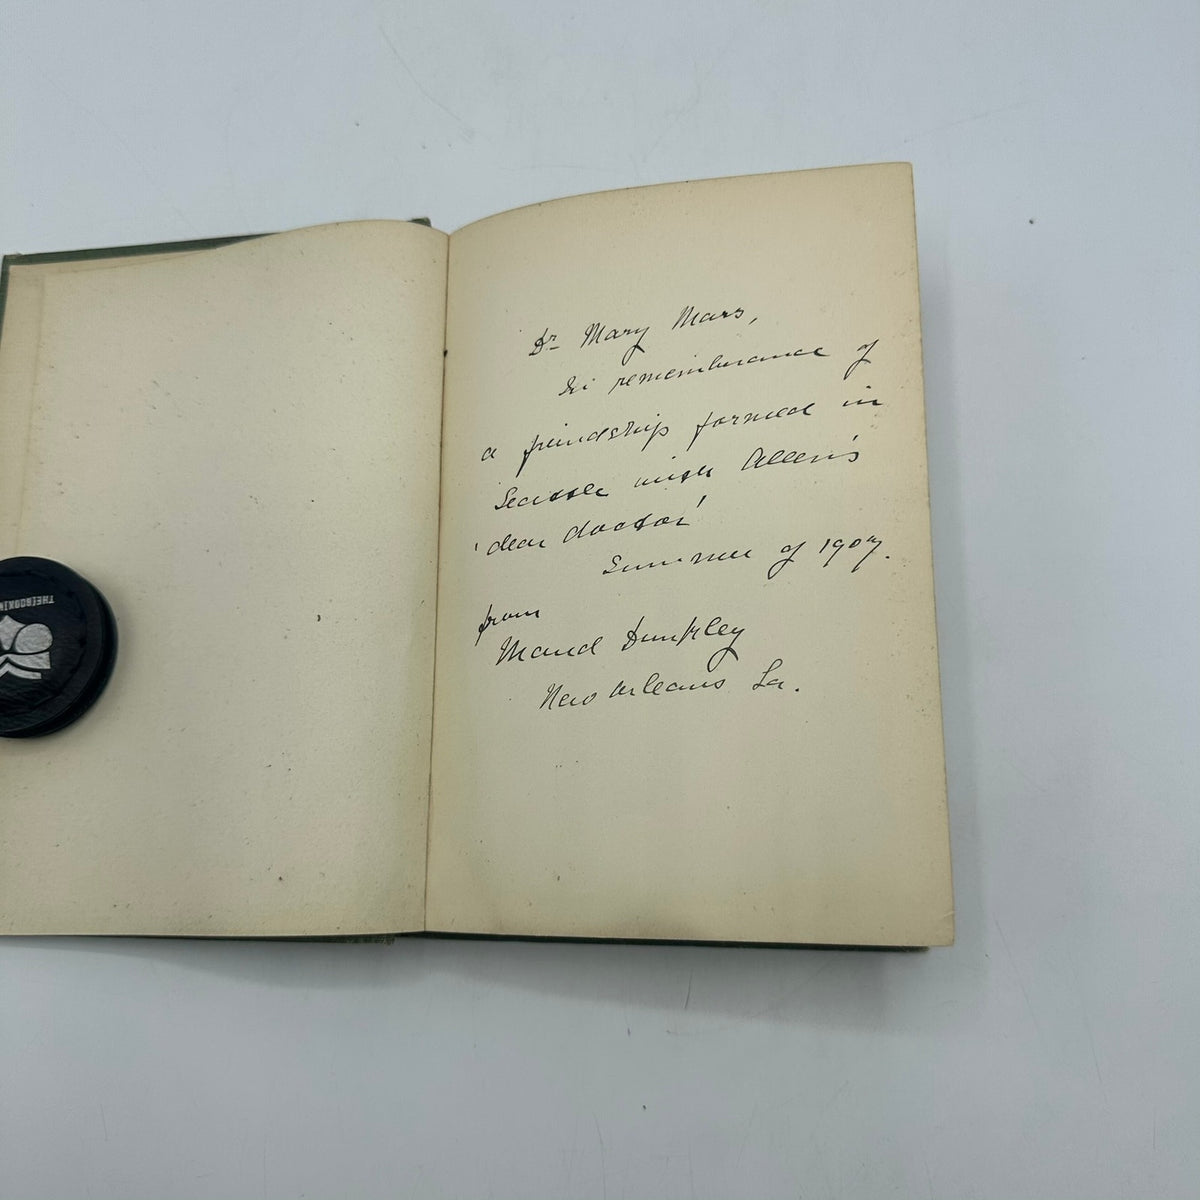 Dr Mary Mars,
In remembrance of
a friendship formed in
Seattle with Allen's
'dear doctor'
Summer of 1907.
from
Maud Dunkley
New Orleans La.
THE[BOOK]